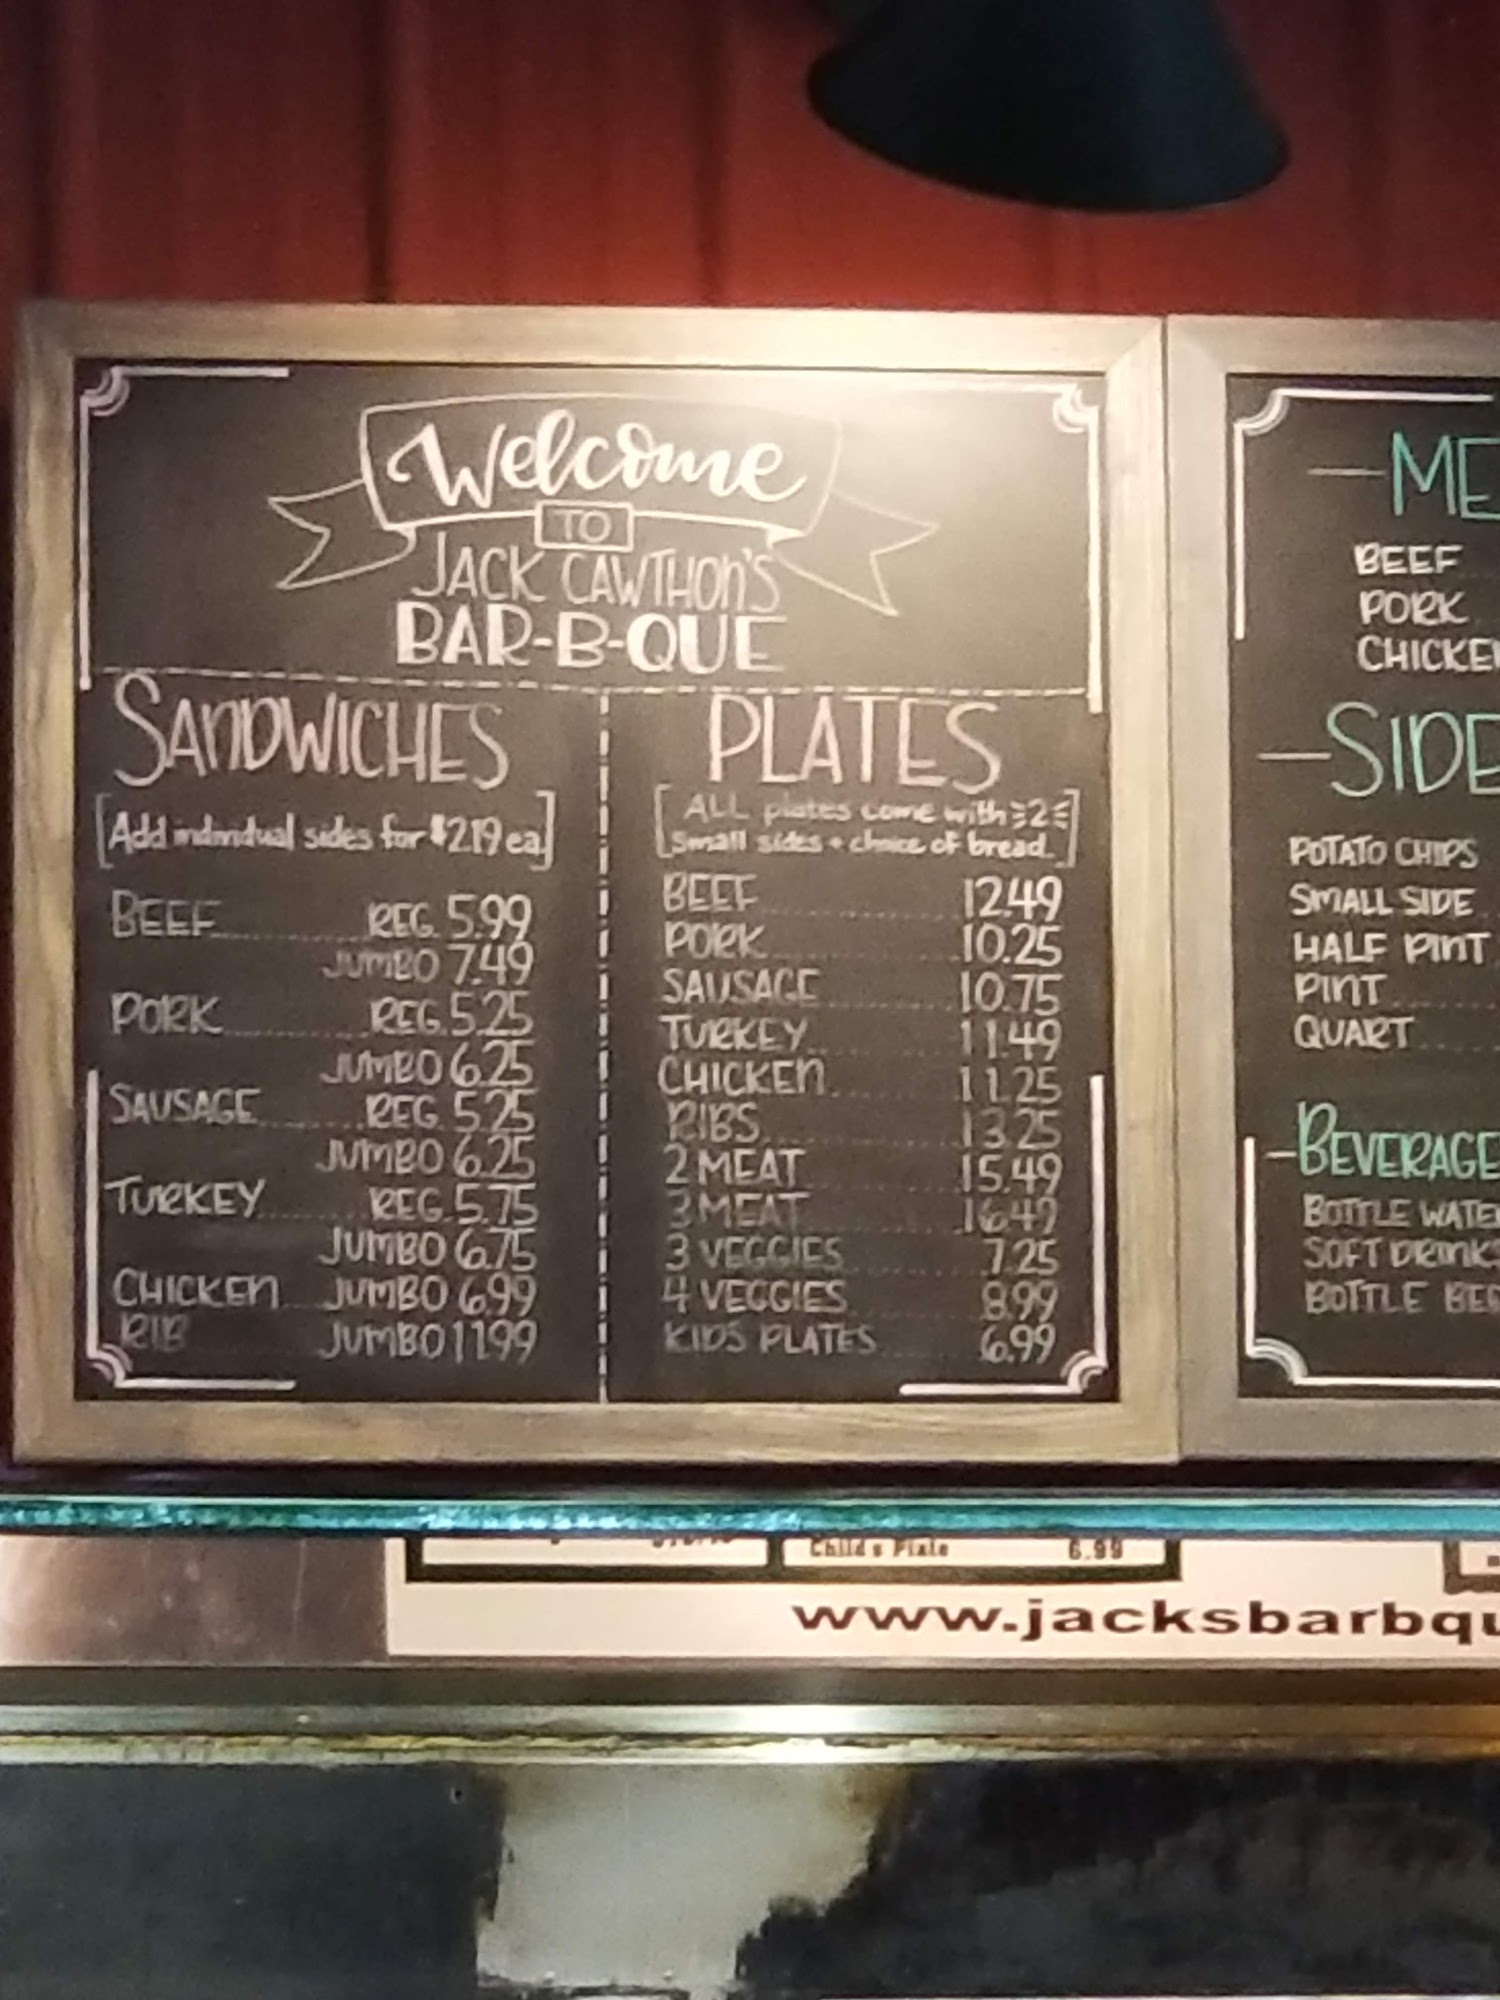 Welcome
TO
JACK CAWTHON'S
BAR-B-QUE
SANDWICHES
[Add individual sides for $2.19 ea]
BEEF REG. 5.99
JUMBO 7.49
PORK REG. 5.25
JUMBO 6.25
SAUSAGE REG. 5.25
JUMBO 6.25
TURKEY REG. 5.75
JUMBO 6.75
CHICKEN JUMBO 6.99
RIB JUMBO 11.99
PLATES
[ALL plates come with 2
small sides + choice of bread.]
BEEF 12.49
PORK 10.25
SAUSAGE 10.75
TURKEY 11.49
CHICKEN 11.25
RIBS 13.25
2 MEAT 15.49
3 MEAT 16.49
3 VEGGIES 7.25
4 VEGGIES 8.99
KIDS PLATES 6.99
ME
BEEF
PORK
CHICKEN
SIDE
POTATO CHIPS
SMALL SIDE
HALF PINT
PINT
QUART
BEVERAGE
BOTTLE WATE
SOFT DRINKS
BOTTLE BEE
Child's Plate 6.99
www.jacksbarbqu